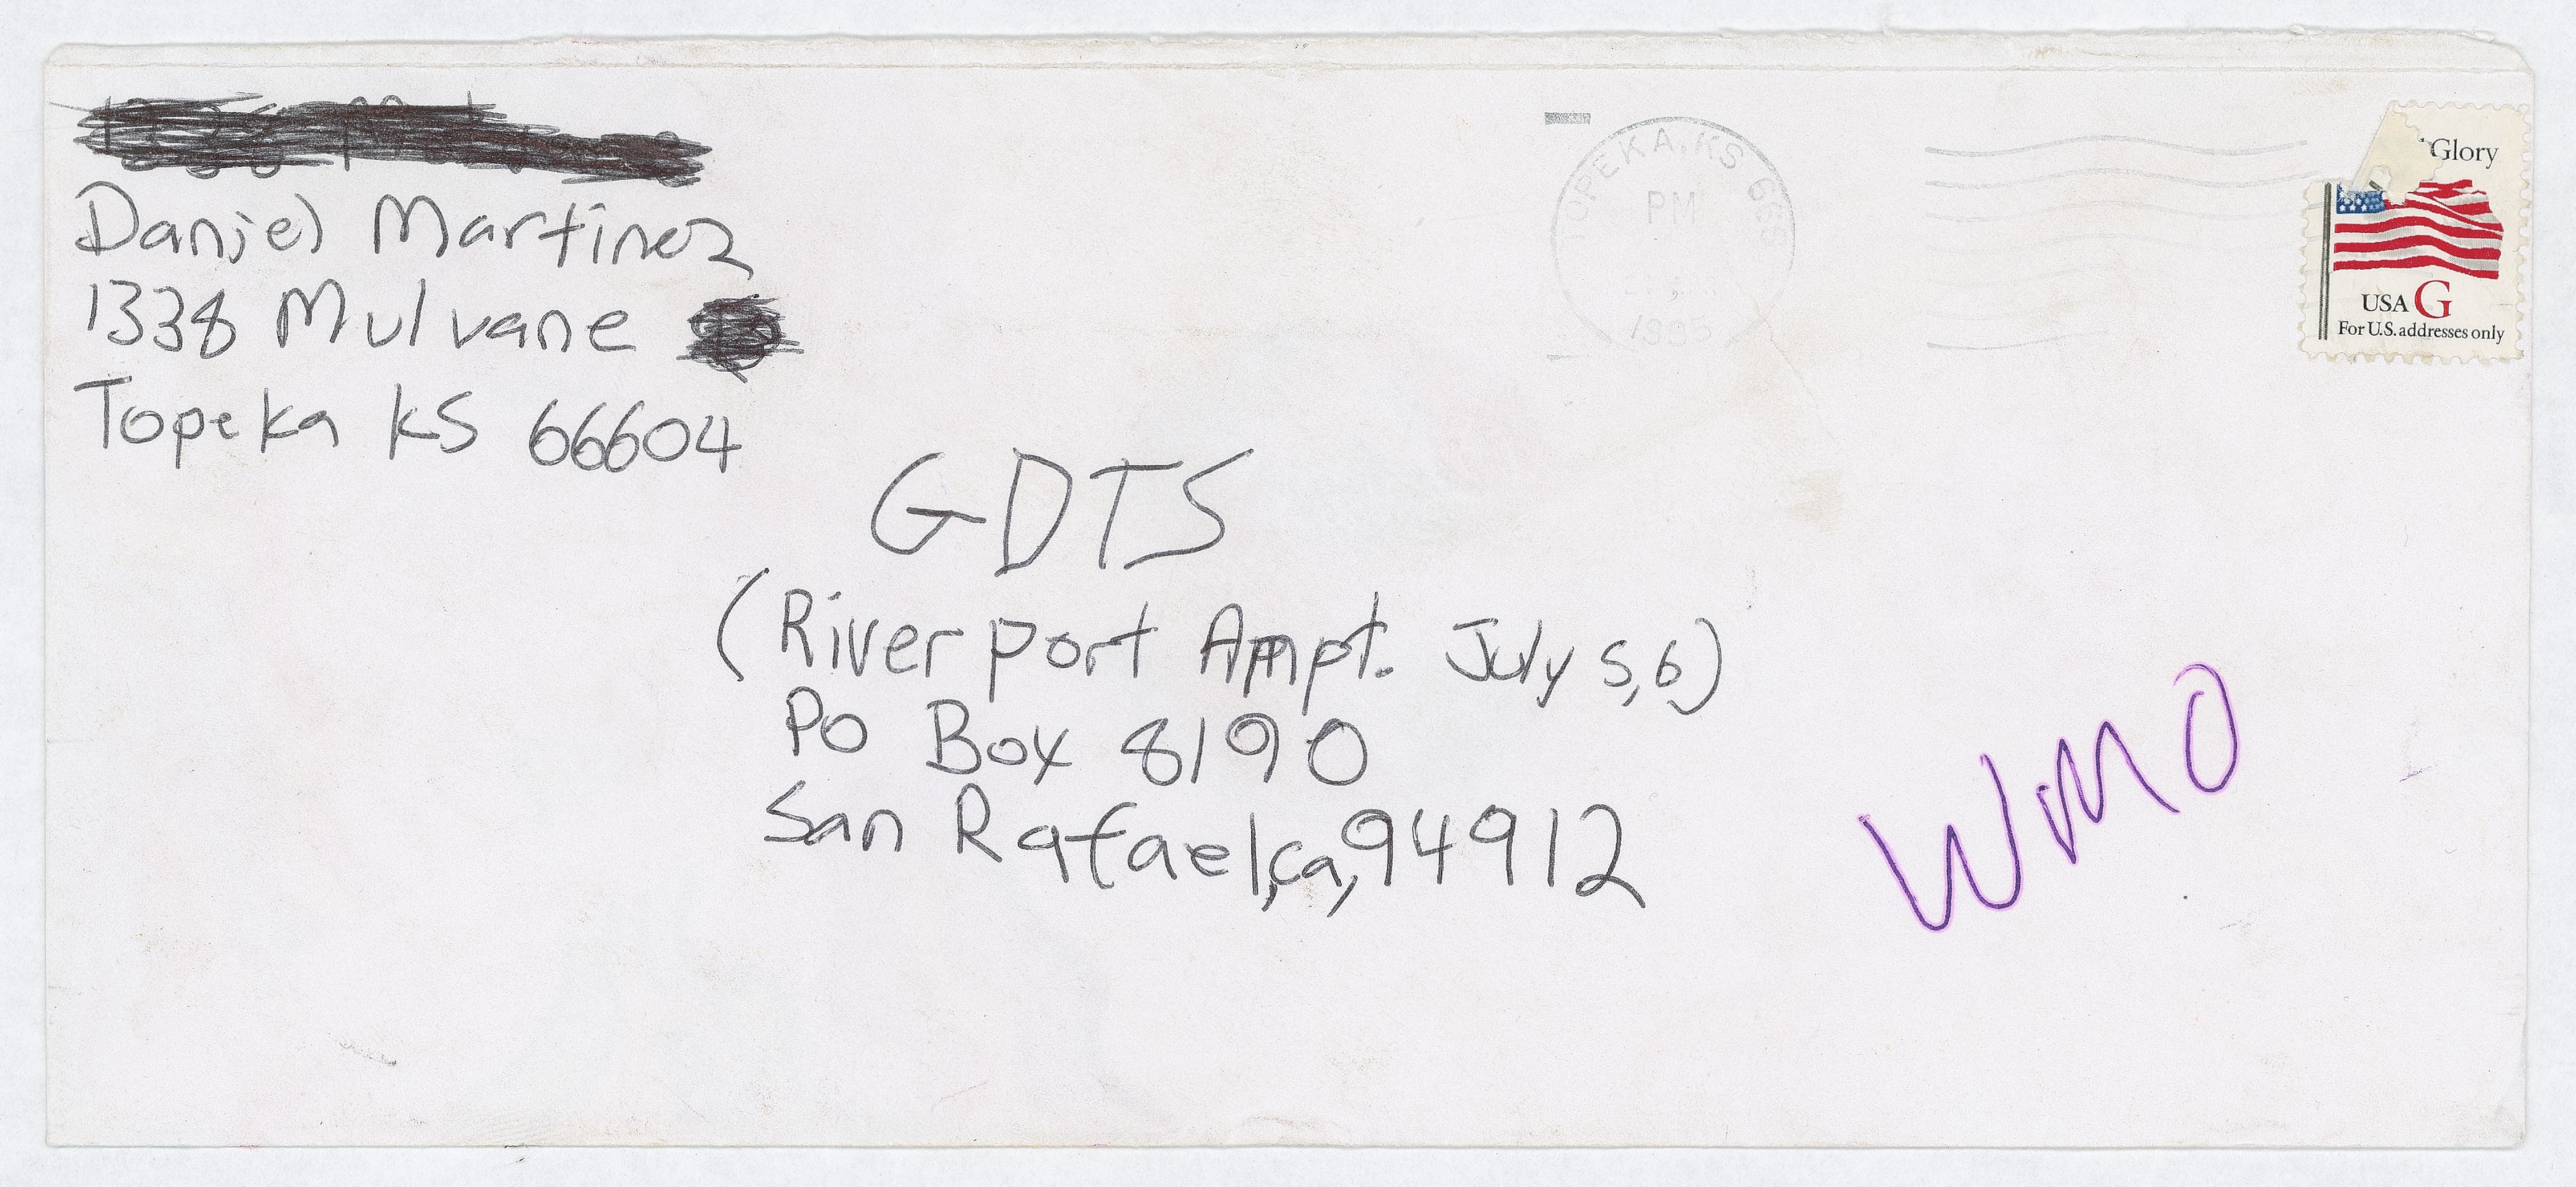 Daniel Martinez
1338 Mulvane
Topeka KS 66604
TOPEKA, KS
PM
Glory
USA G
For U.S. addresses only
GDTS
(Riverport Ampt. July 5,6)
PO Box 8190
San Rafael, Ca, 94912
WMO